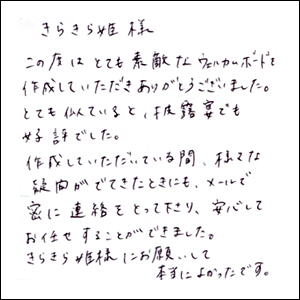 きらきら姫様
この度はとても素敵なウェルカムボードを
作成していただきありがとうございました。
とても似ていると、披露宴でも
好評でした。
作成していただいている間、様々な
疑問がでてきたときにも、メールで
密に連絡をとって下さり、安心して
お任せすることができました。
きらきら姫様にお願いして
本当によかったです。